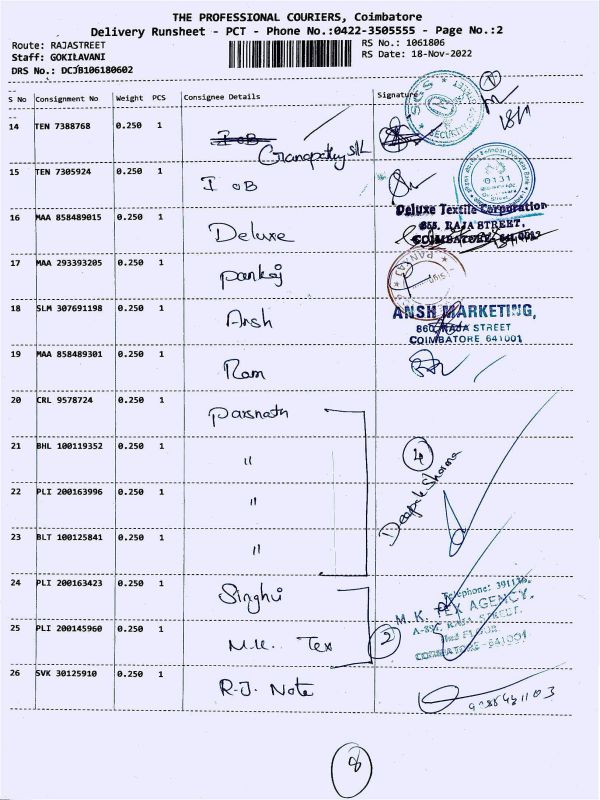 THE PROFESSIONAL COURIERS, Coimbatore
Delivery Runsheet - PCT - Phone No.:0422-3505555 - Page No.:2
Route: RAJASTREET
Staff: GOKILAVANI
DRS No.: DCJB106180602
RS No.: 1061806
RS Date: 18-Nov-2022
S No Consignment No Weight PCS Consignee Details Signature
SGS
SECURITY
14 TEN 7388768 0.250 1 I OB
Ganapathy Silk
15 TEN 7305924 0.250 1 I OB
0131
16 MAA 858489015 0.250 1 Deluxe
Deluxe Textile Corporation
855, RAJA STREET,
COIMBATORE, 641 001
17 MAA 293393205 0.250 1 Pankaj
PANKAJ
18 SLM 307691198 0.250 1 Ansh
ANSH MARKETING,
860, RAJA STREET
COIMBATORE 641001
19 MAA 858489301 0.250 1 Ram
20 CRL 9578724 0.250 1 Parsnath
21 BHL 100119352 0.250 1 "
4
22 PLI 200163996 0.250 1 "
Deepak Sharma
23 BLT 100125841 0.250 1 "
24 PLI 200163423 0.250 1 Singhvi
M.K. TEX AGENCY,
RAJA STREET,
COIMBATORE-641001
25 PLI 200145960 0.250 1 M.K. Tex
2
26 SVK 30125910 0.250 1 R.J. Note
8